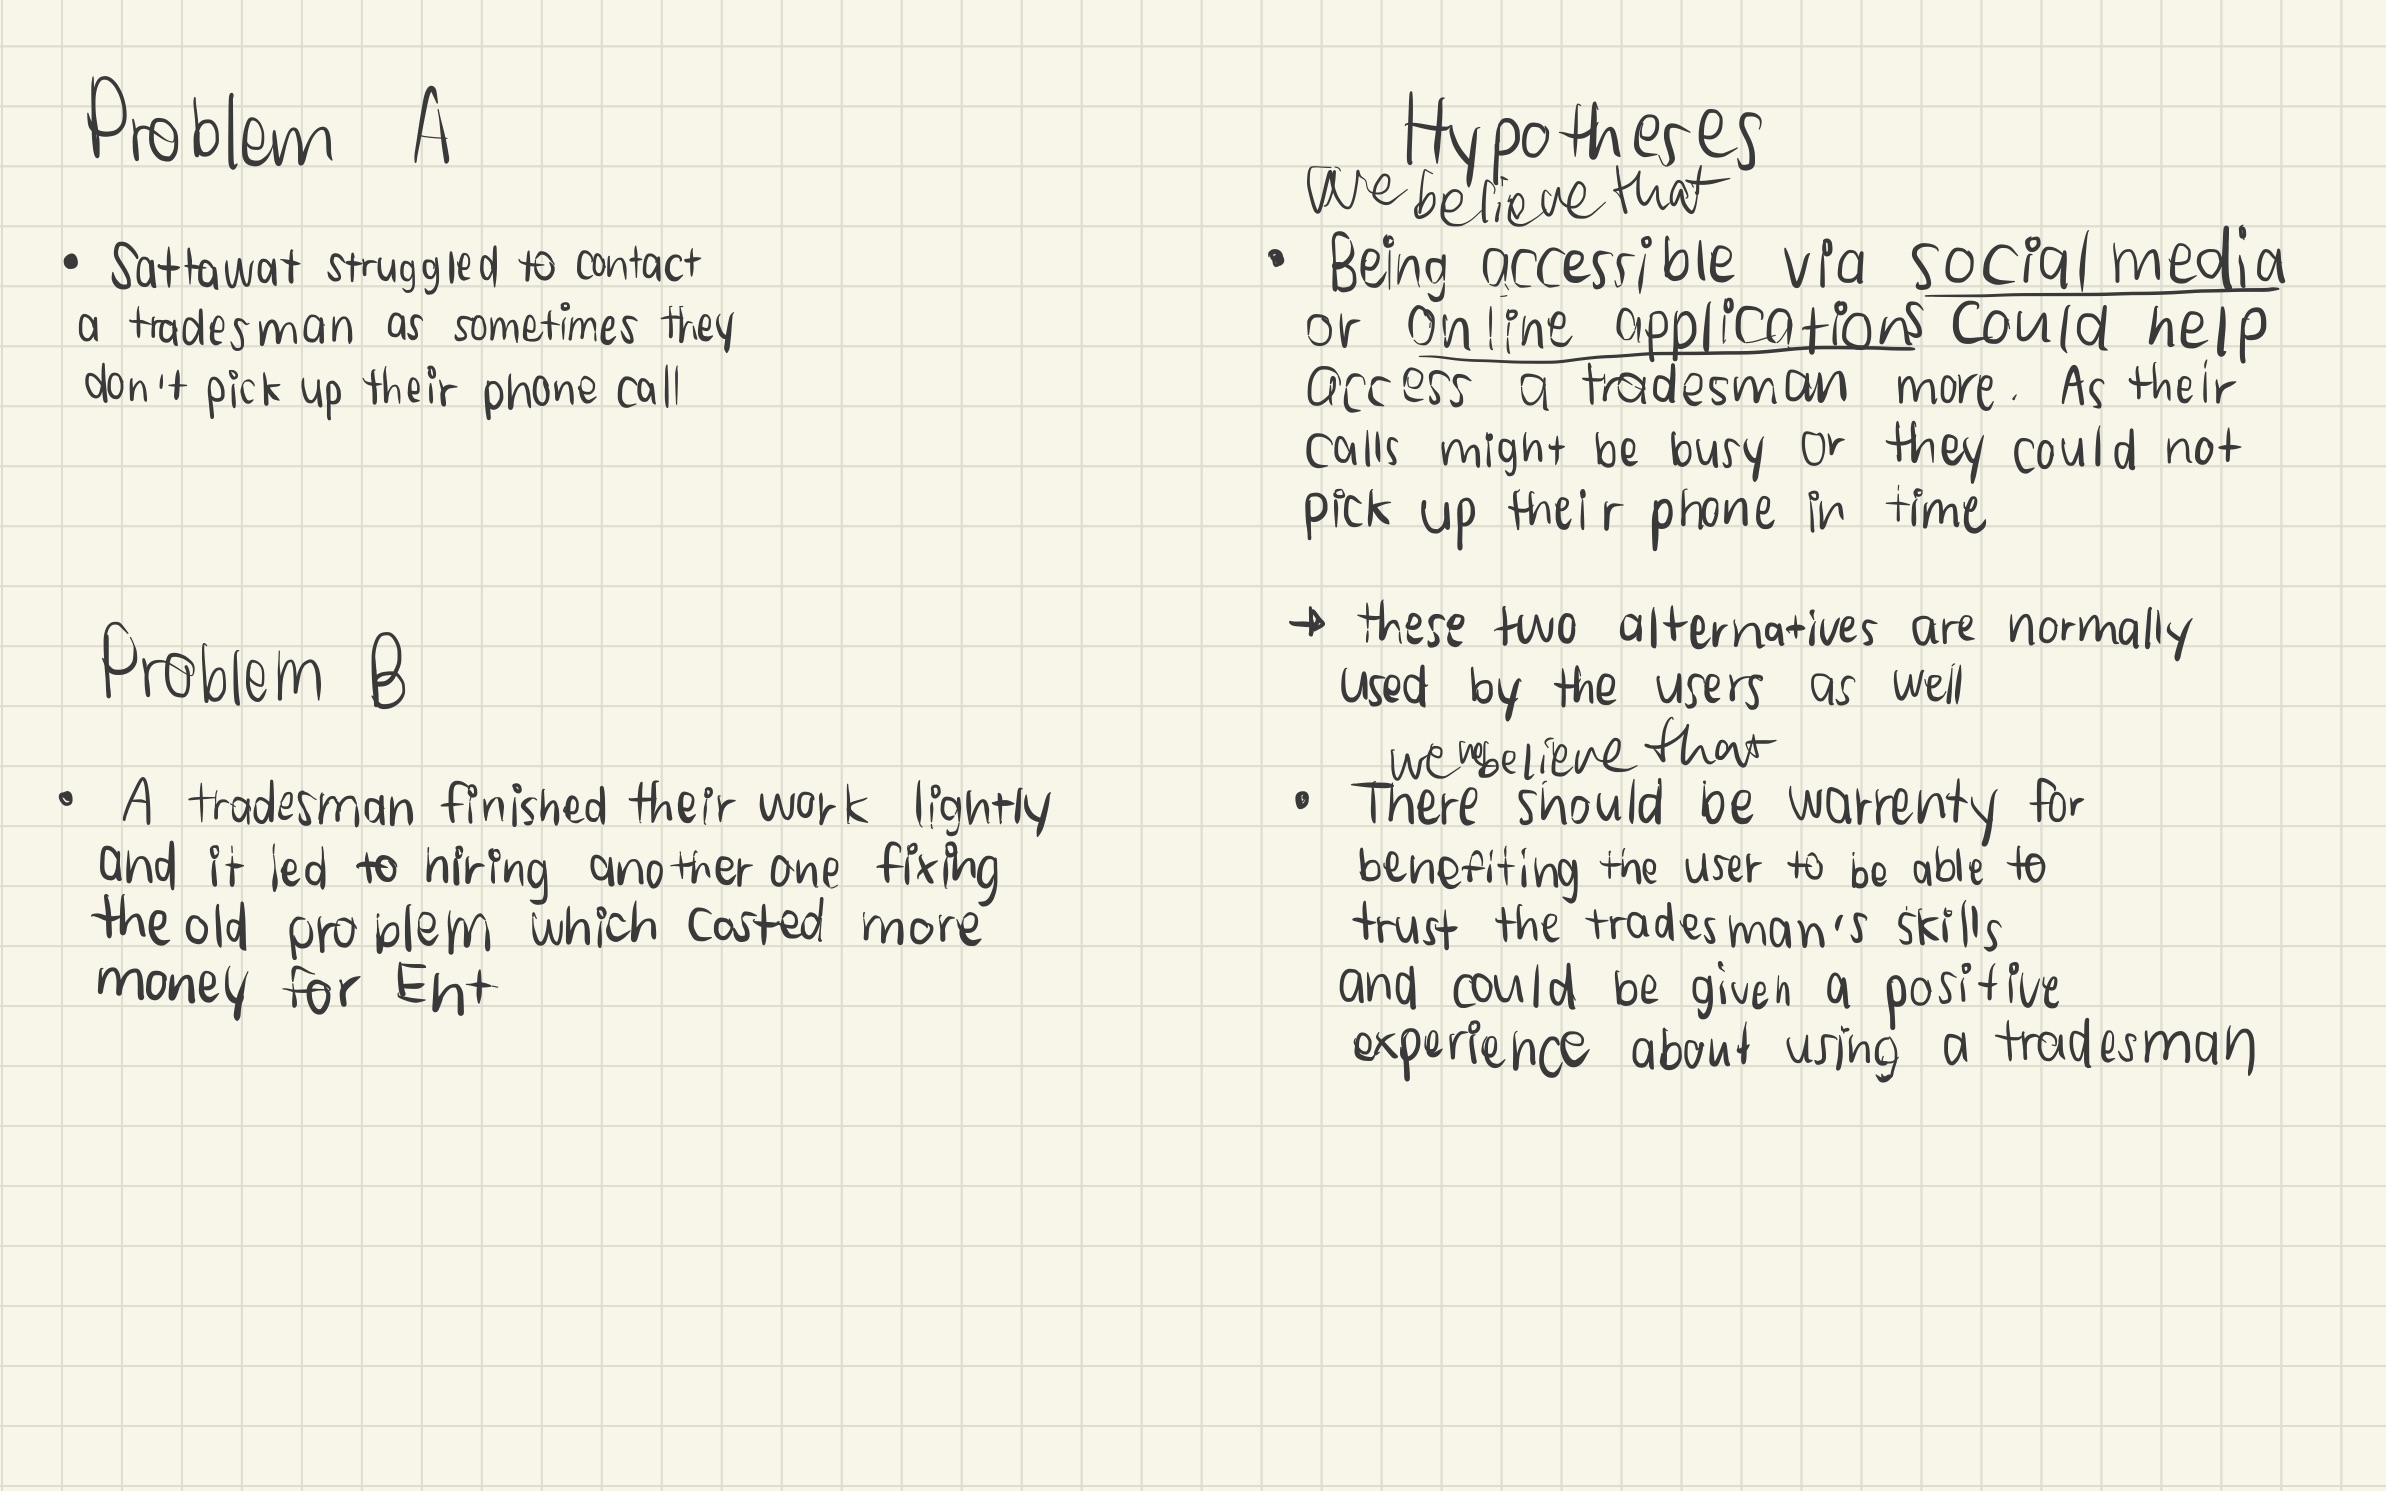 Problem A
• Sattawat struggled to contact
a tradesman as sometimes they
don't pick up their phone call
Problem B
• A tradesman finished their work lightly
and it led to hiring another one fixing
the old problem which costed more
money for Ent
Hypotheses
We believe that
• Being accessible via social media
or online applications could help
access a tradesman more. As their
calls might be busy or they could not
pick up their phone in time
→ these two alternatives are normally
used by the users as well
we believe that
• There should be warrenty for
benefiting the user to be able to
trust the tradesman's skills
and could be given a positive
experience about using a tradesman